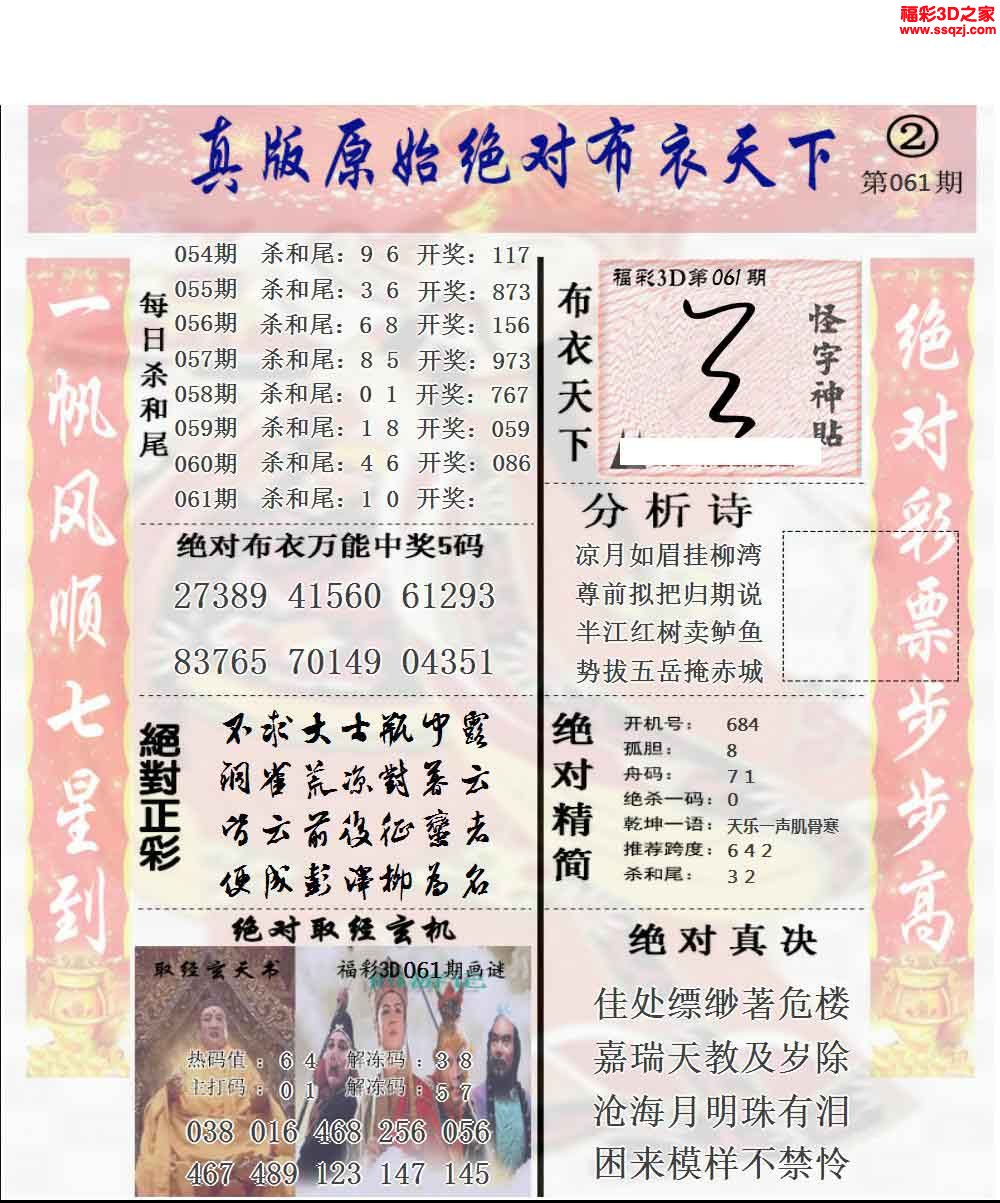 福彩3D之家
www.ssqzj.com
真版原始绝对布衣天下
②
第061期
一帆风顺七星到
每日杀和尾
054期 杀和尾：9 6 开奖：117
055期 杀和尾：3 6 开奖：873
056期 杀和尾：6 8 开奖：156
057期 杀和尾：8 5 开奖：973
058期 杀和尾：0 1 开奖：767
059期 杀和尾：1 8 开奖：059
060期 杀和尾：4 6 开奖：086
061期 杀和尾：1 0 开奖：
布衣天下
福彩3D第061期
怪字神貼
绝对彩票步步高
绝对布衣万能中奖5码
27389 41560 61293
83765 70149 04351
分析诗
凉月如眉挂柳湾
尊前拟把归期说
半江红树卖鲈鱼
势拔五岳掩赤城
絕對正彩
不求大士瓶中露
洞雀荒凉對暮云
皆云前後征蠻者
便成彭泽柳為名
绝对精简
开机号： 684
孤胆： 8
舟码： 7 1
绝杀一码：0
乾坤一语：天乐一声肌骨寒
推荐跨度：6 4 2
杀和尾： 3 2
绝对取经玄机
取经玄天书
福彩3D061期画谜
热码值：6 4 解冻码：3 8
主打码：0 1 解冻码：5 7
038 016 468 256 056
467 489 123 147 145
绝对真决
佳处缥缈著危楼
嘉瑞天教及岁除
沧海月明珠有泪
困来模样不禁怜